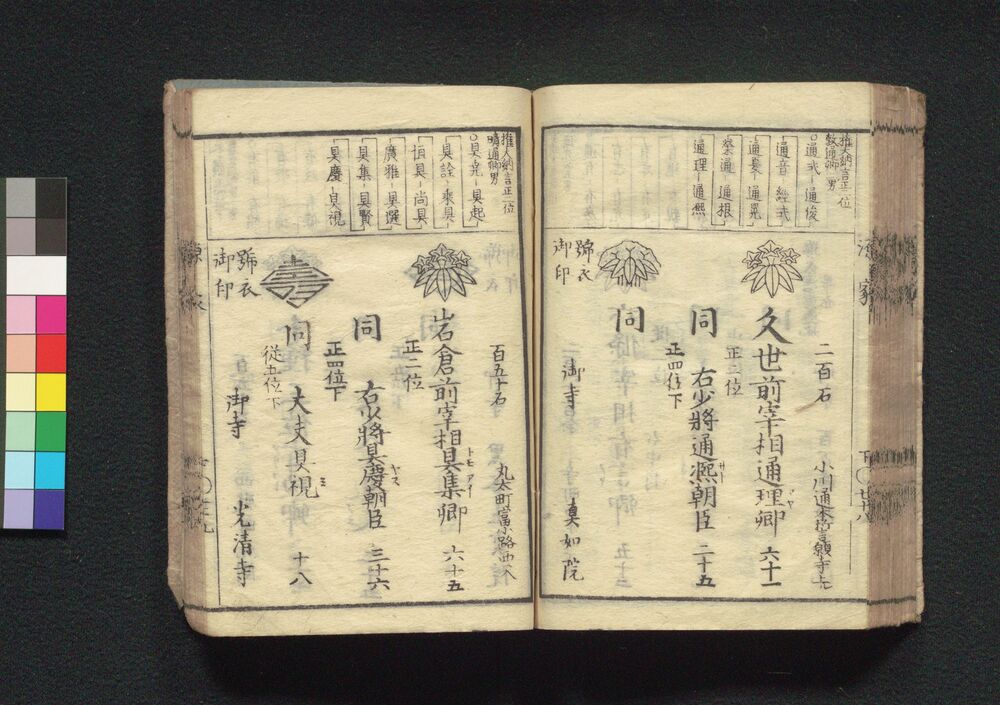 権大納言正二位
敦通卿男
○通式－通俊
通音 経式
通夏－通晃
栄通－通根
通理－通煕
二百石
小川通本誓願寺上
久世前宰相通理卿 六十一
正三位
同 右少将通煕朝臣 二十五
正四位下
同 御寺 真如院
號衣
御印
権大納言正二位
晴通卿男
○具堯－具起
具詮－乗具
恒具－尚具
廣雅－具選
具集－具賢
具慶－具視
百五十石
丸太町富小路西入
岩倉前宰相具集卿 六十五
トモ アイ
正二位
同 右少将具慶朝臣 三十六
ヤス
正四位下
同 大夫具視 十八
ミ
従五位下
御寺 光清寺
號衣
御印